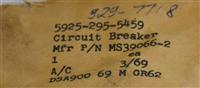 929-7718
5925-295-5459
Circuit Breaker
Mfr P/N MS39066-2
1 ea
A/C 3/69
DSA900 69 M GR62